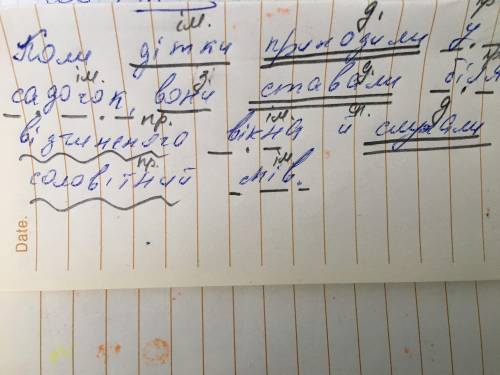 ім. д. пр
Коли дітки приходили у
ім. з. д. пр
садочок, вони ставали біля
пр. ім. сп. д.
відчиненого вікна й слухали
пр. ім.
солов'їний спів.
Date.